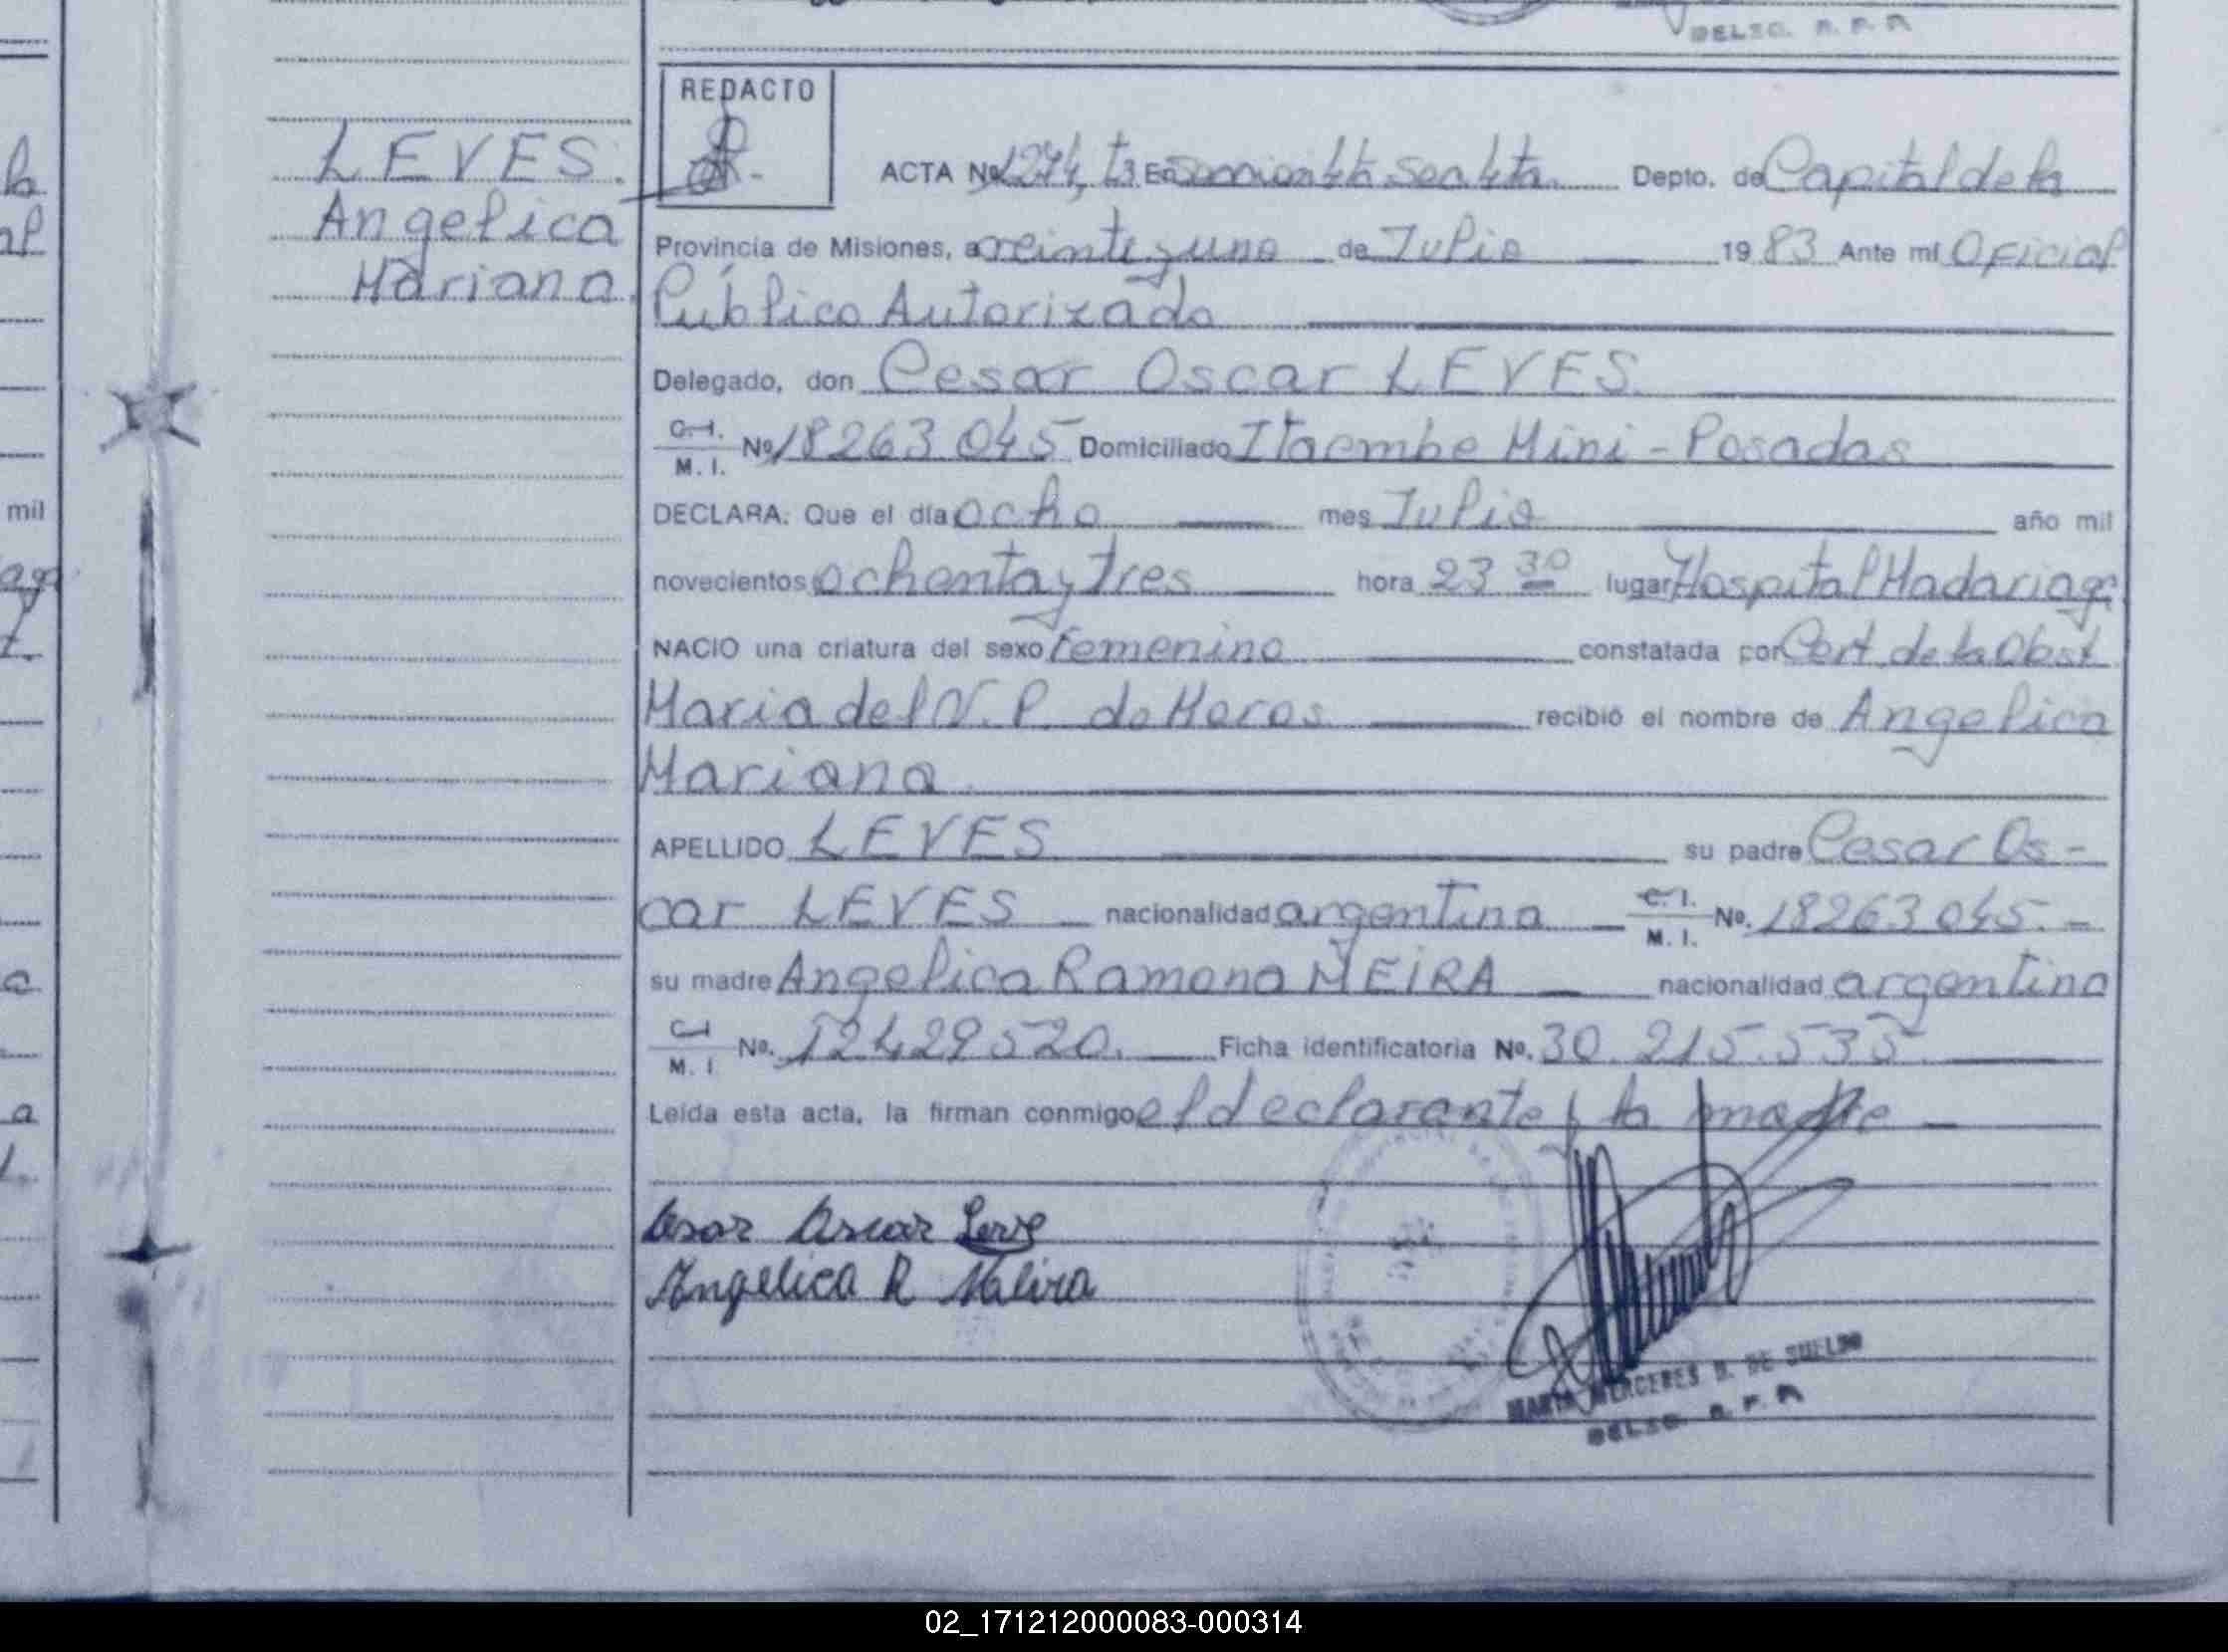 DELEG. R. P. A
REDACTO
LEVES.
Angelica
Mariana.
ACTA Nº 1274, t3 En Depto. de Capital de la
Provincia de Misiones, a veinte y uno de Julio 1983 Ante mi Oficial
Público Autorizado
Delegado, don Cesar Oscar LEVES.
C.I. M.I. Nº 18263.045 Domiciliado Itaembe Mini - Posadas
DECLARA: Que el día ocho mes Julio año mil
novecientos ochenta y tres hora 23 30 lugar Hospital Madariaga
NACIO una criatura del sexo femenino constatada por Cert. de la Obst
Maria del V. P. de recibió el nombre de Angelica
Mariana
APELLIDO LEVES su padre Cesar Os-
car LEVES nacionalidad argentina C.I. M.I. Nº. 18263.045.-
su madre Angelica Ramona MEIRA nacionalidad argentina
C.I M.I Nº. 12429520. Ficha identificatoria Nº. 30.215.535
Leída esta acta, la firman conmigo el declarante y la madre
Cesar Oscar Leves
Angelica R
MARTA MERCEDES B. DE SUELDO
DELEG. R. P. A
mil
02_171212000083-000314